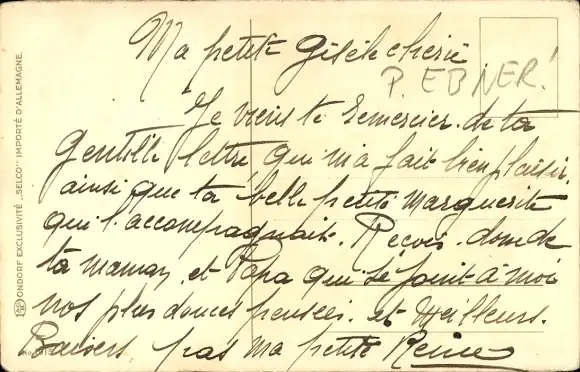 Ma petite Gisèle cherie
P. EBNER!
Je viens te remercier de ta
gentille lettre qui m'a fait bien plaisir.
ainsi que ta belle petite marguerite
qui l'accompagnait. Recois donc de
ta maman et Papa qui se joint à moi
nos plus douces pensées. et Meilleurs.
Baisers pas ma petite Reine
ONDORF EXCLUSIVITÉ „SELCO" IMPORTÉ D'ALLEMAGNE.